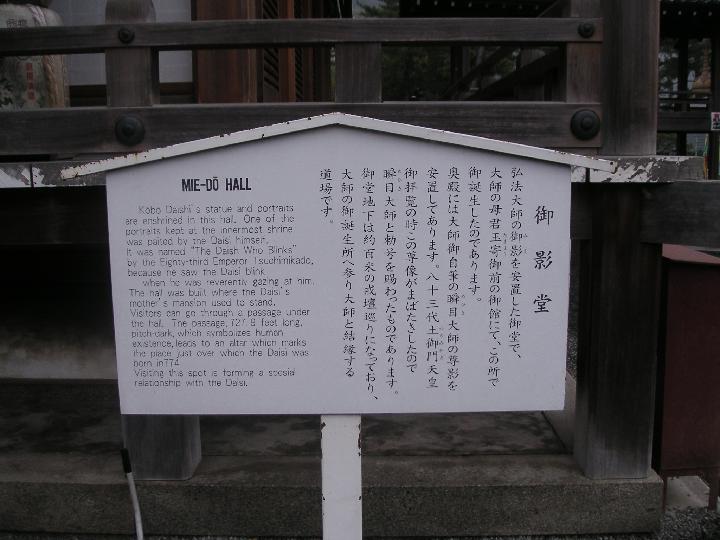 MIE-DŌ HALL
Kobo Daishi's statue and portraits
are enshrined in this hall. One of the
portraits kept at the innermost shrine
was paited by the Daisi himself.
It was named "The Daishi Who Blinks"
by the Eighty-third Emperor Tsuchimikado,
because he saw the Daisi blink
when he was reverently gazing at him.
The hall was built where the Daisi's
mother's mansion used to stand.
Visitors can go through a passage under
the hall. The passage, 127.8 feet long,
pitch-dark, which symbolizes human
existence, leads to an altar which marks
the place just over which the Daisi was
born in 774.
Visiting this spot is forming a special
relationship with the Daisi.
御影堂
弘法大師の御影を安置した御堂で、
大師の母君玉寄御前の御館にて、この所で
御誕生したのであります。
奥殿には大師御自筆の瞬目大師の尊影を
安置してあります。八十三代土御門天皇
御拝覧の時この尊像がまばたきしたので
瞬目大師と勅号を賜わったものであります。
御堂地下は約百米の戒壇巡りになっており、
大師の御誕生所へ参り大師と結縁する
道場です。